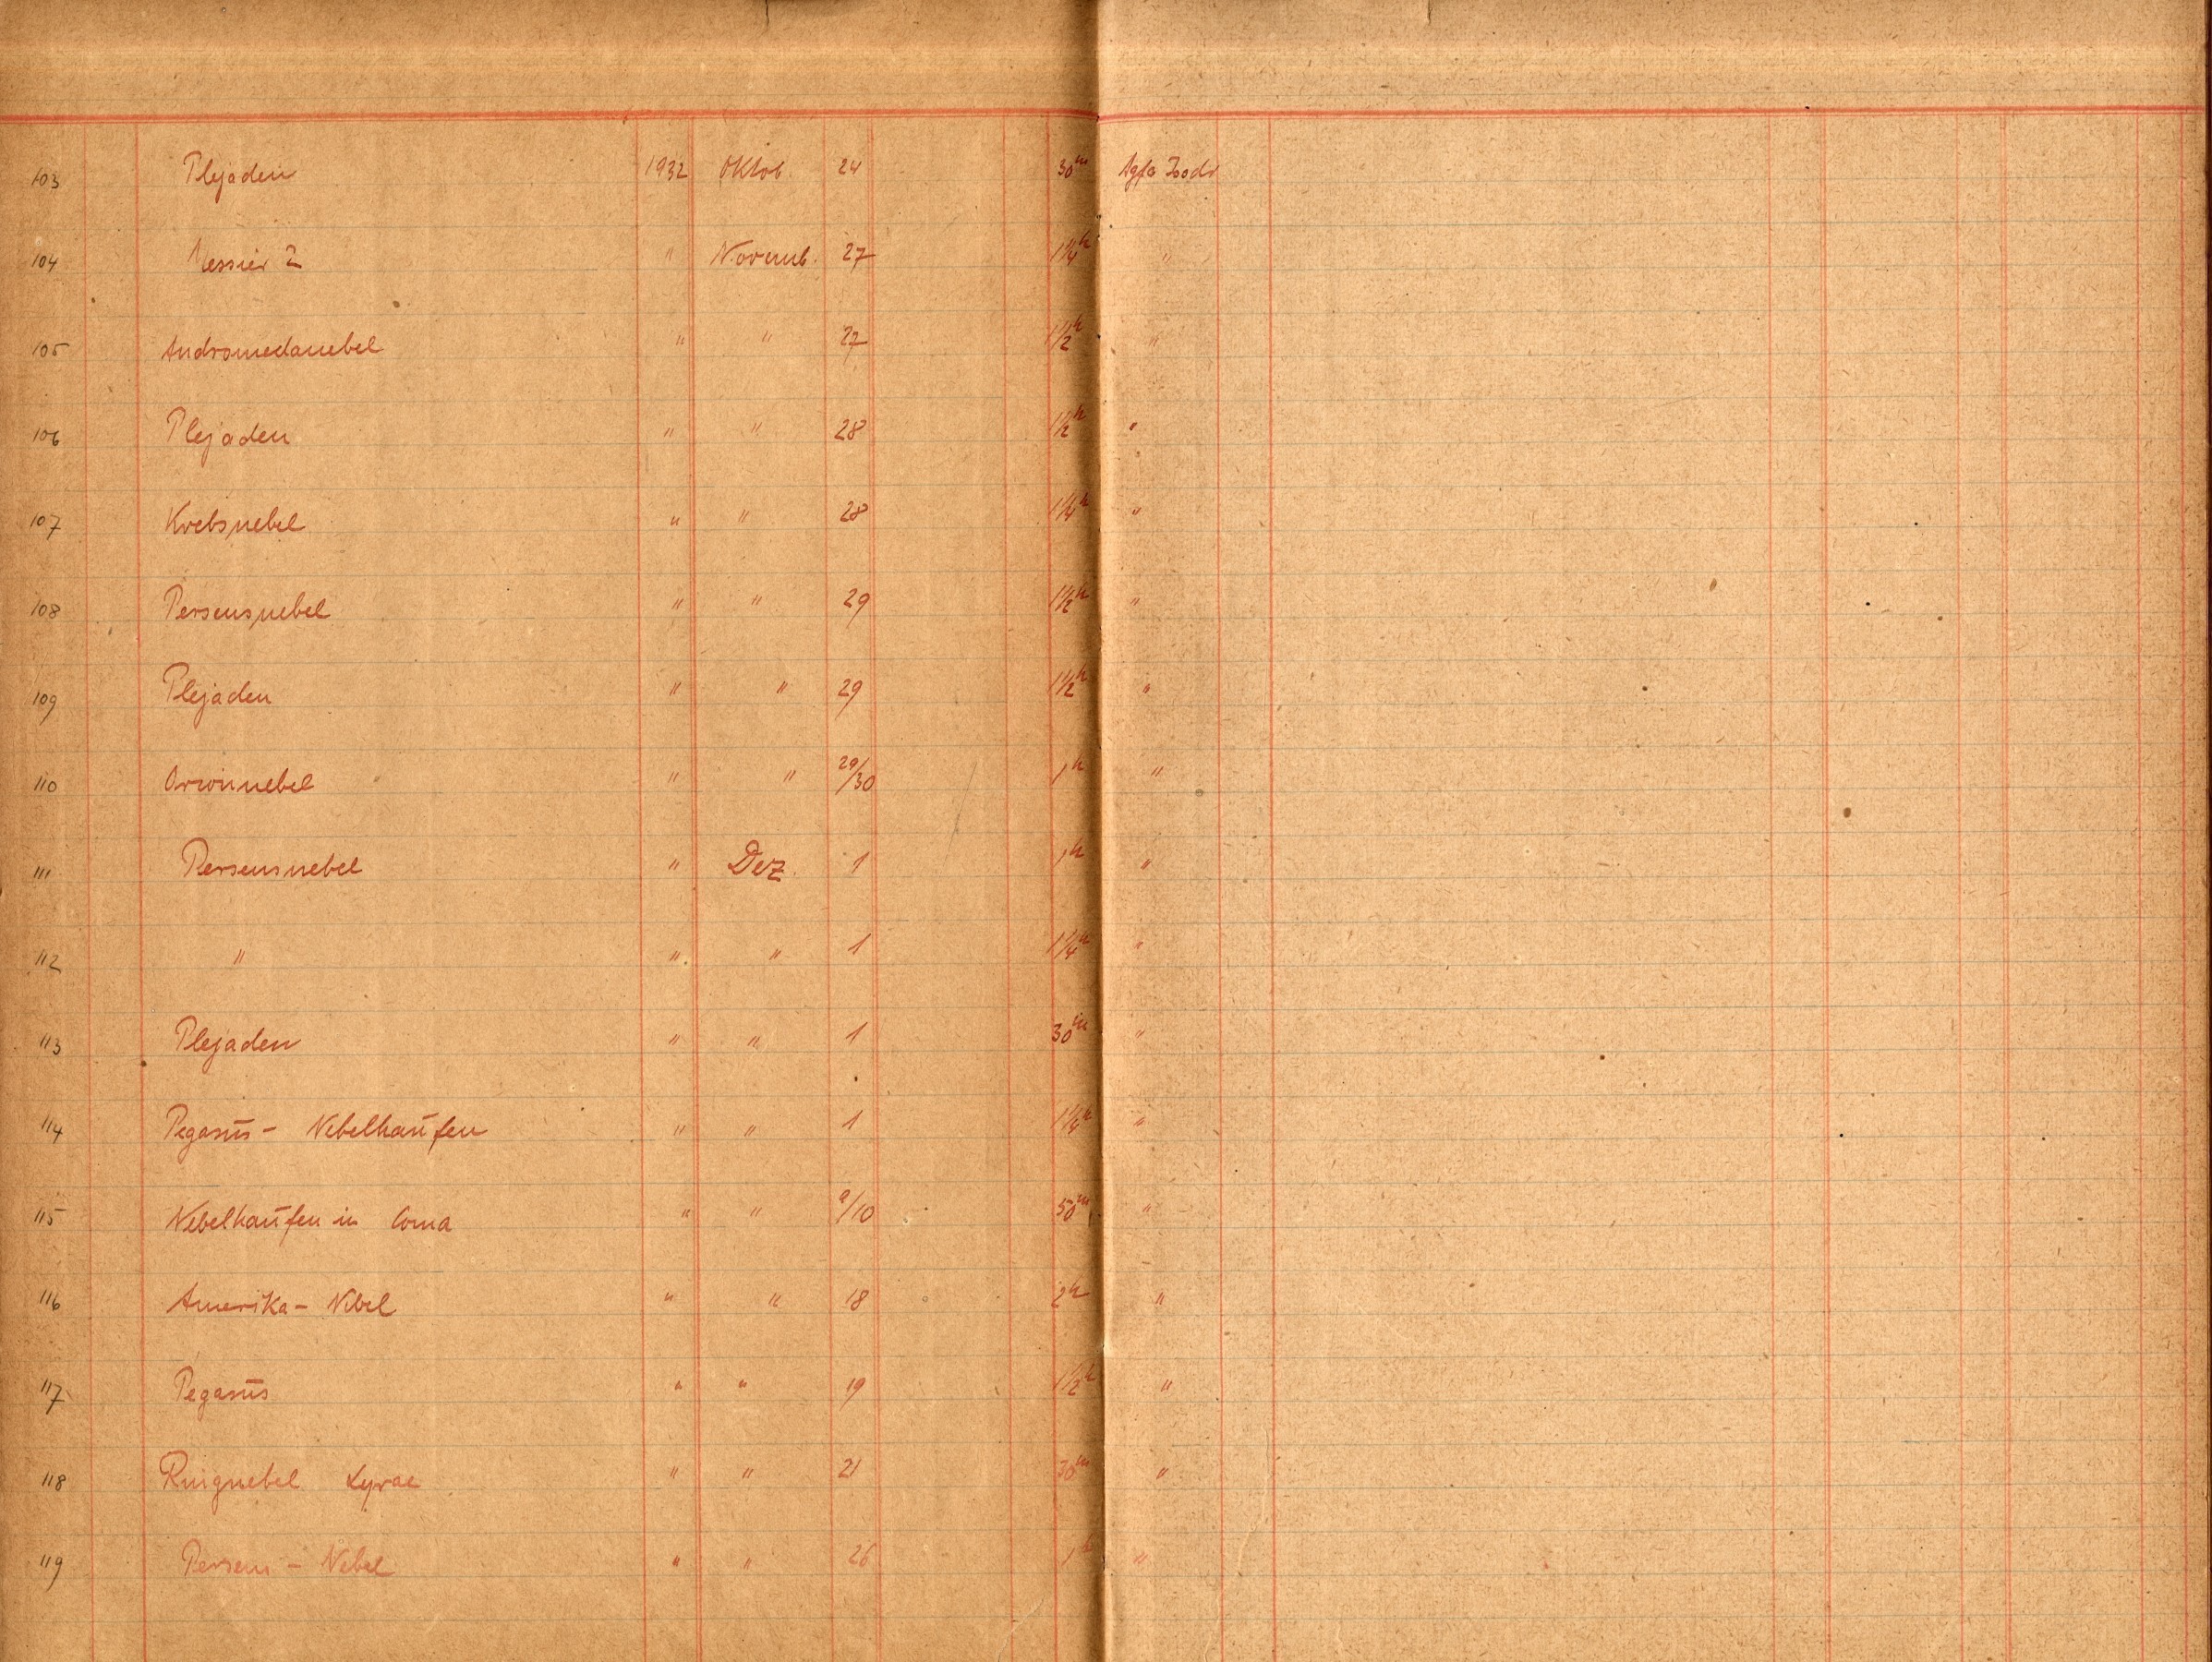 103 Plejaden 1932 Oktob. 24 30m Agfa Isodr
104 Messier 2 " Novemb. 27 1¼h "
105 Andromedanebel " " 27 1½h "
106 Plejaden " " 28 1½h "
107 Krebsnebel " " 28 1¼h "
108 Perseusnebel " " 29 1½h "
109 Plejaden " " 29 1½h "
110 Orionnebel " " 29/30 1h "
111 Perseusnebel " Dez. 1 1h "
112 " " " 1 1¼h "
113 Plejaden " " 1 30m "
114 Pegasus - Nebelhaufen " " 1 1¼h "
115 Nebelhaufen in Coma " " 9/10 50m "
116 Amerika - Nebel " " 18 2h "
117 Pegasus " " 19 1½h "
118 Ringnebel Lyrae " " 21 30m "
119 Perseus - Nebel " " 26 1h "